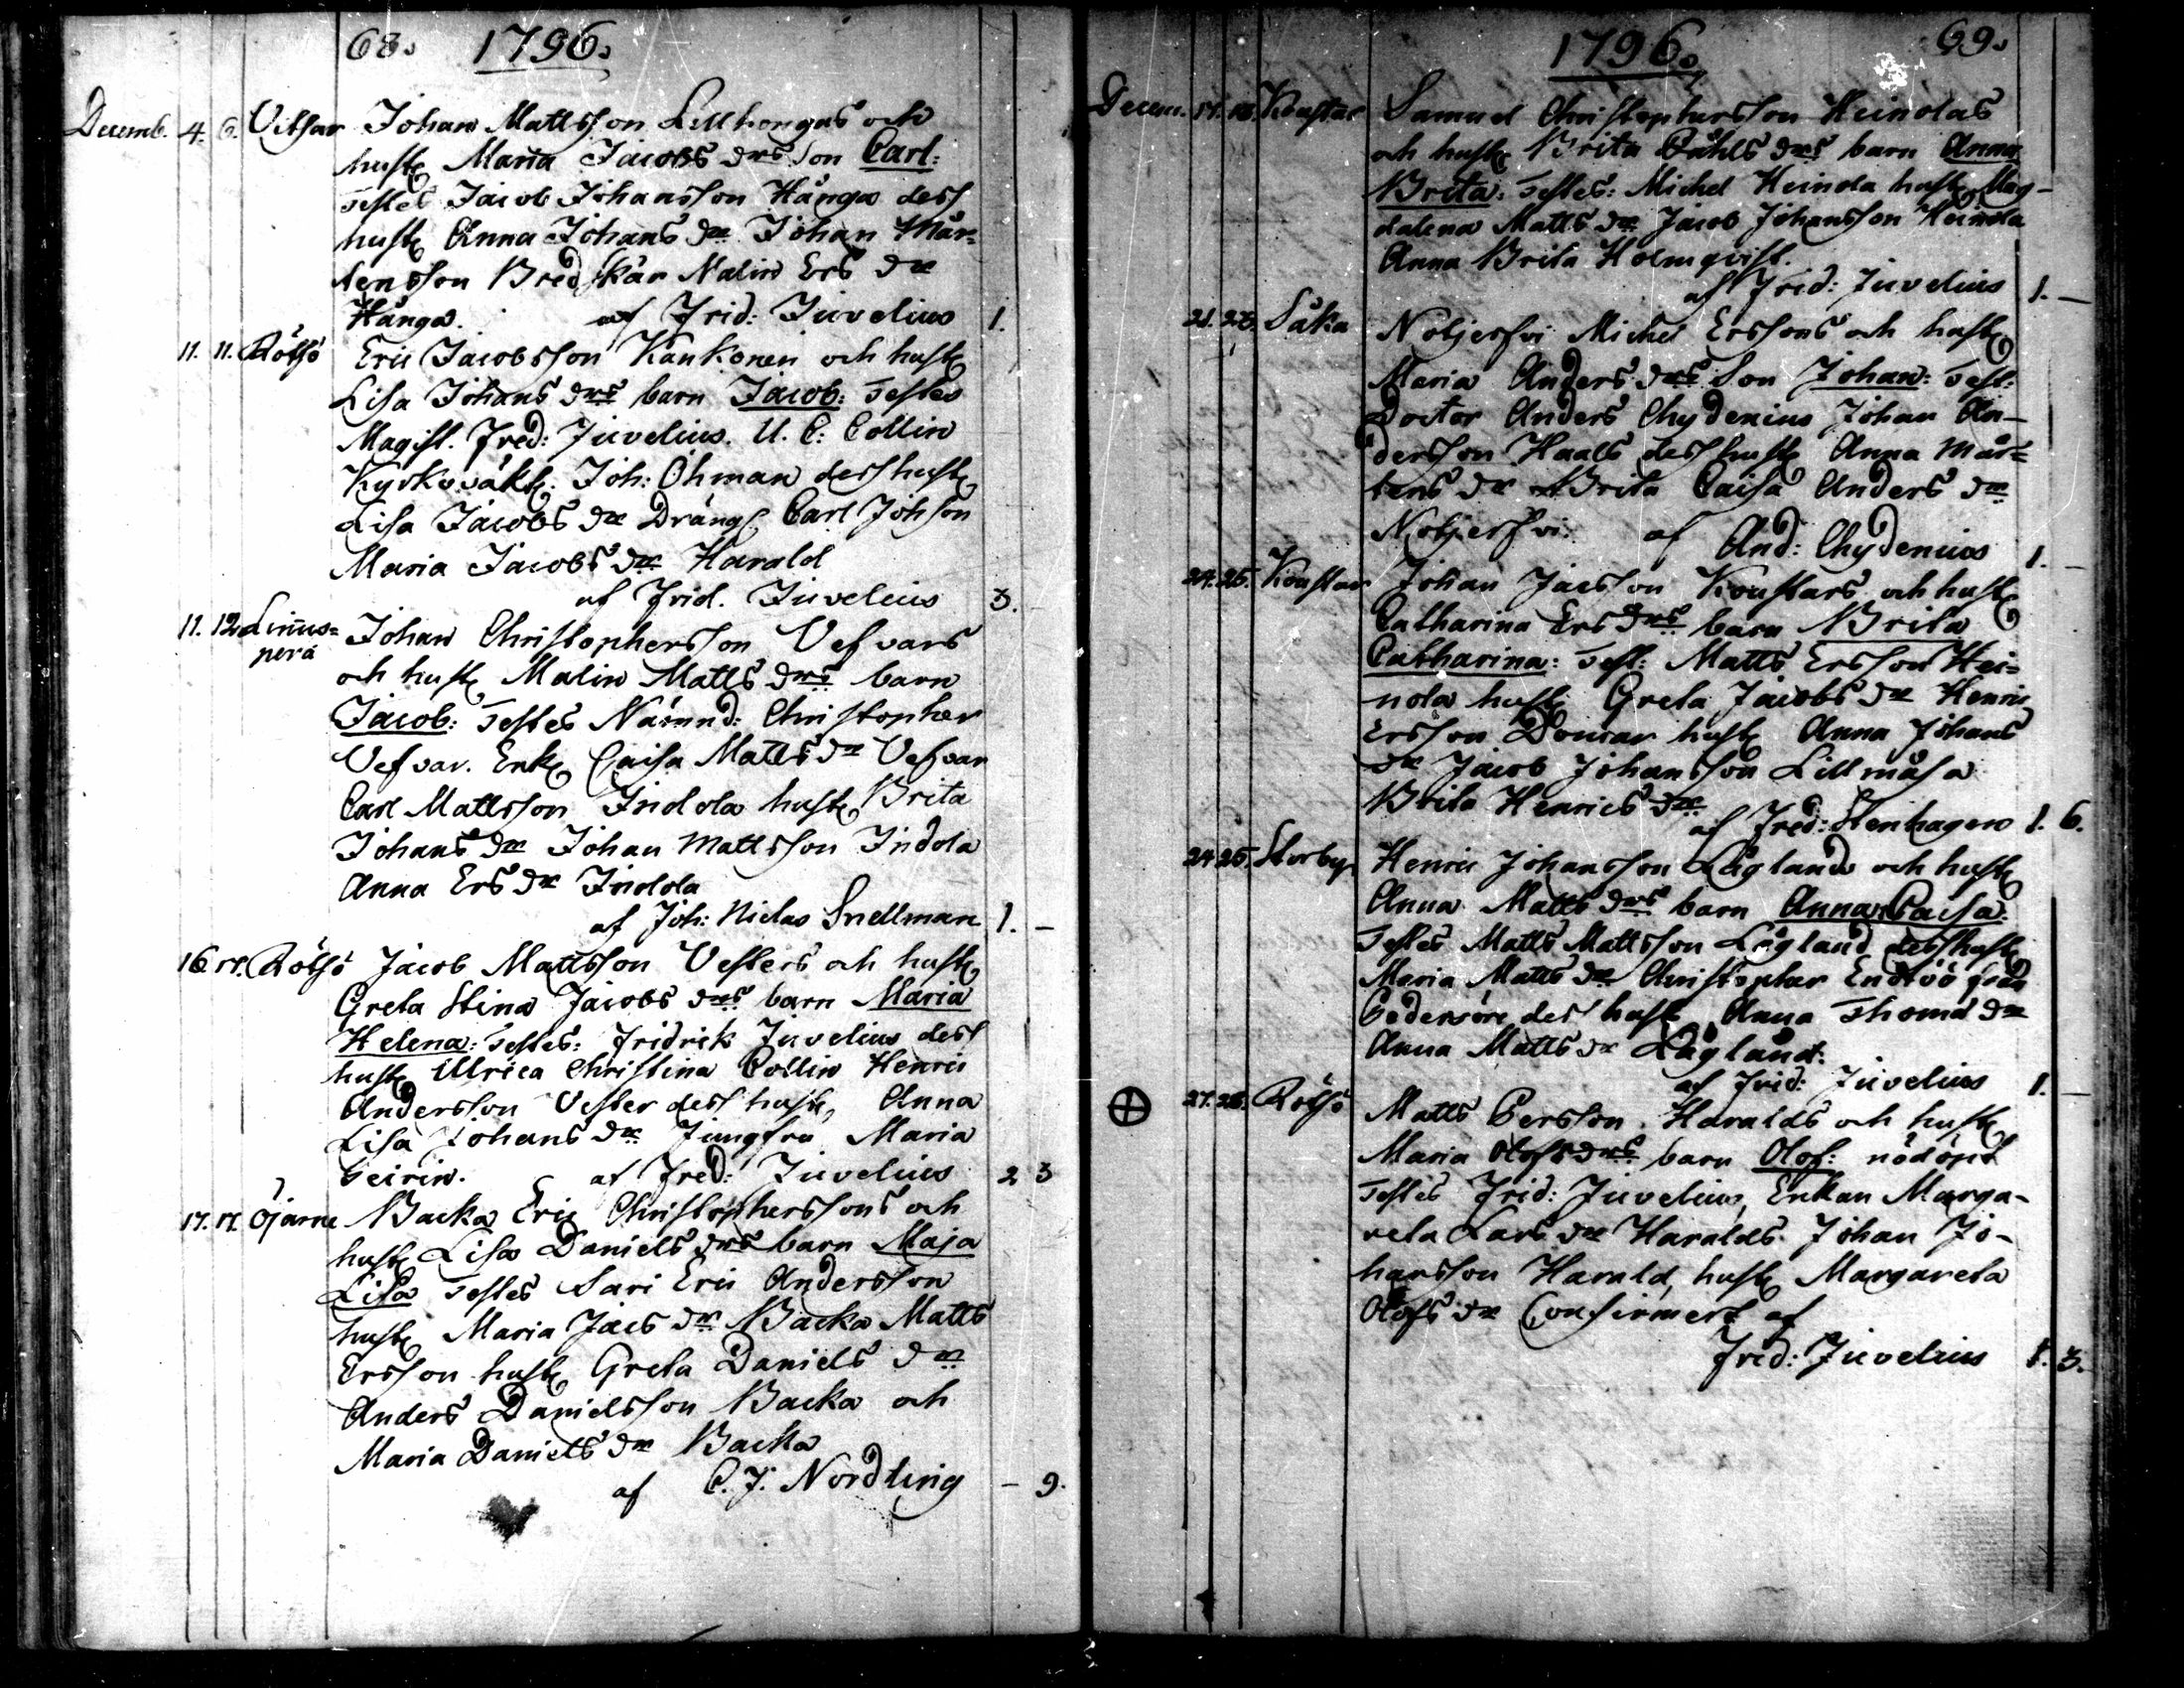 68. 1796.
Decemb. 4. 6. Vitsar Johan Mattsson Lillhongas och
hust. Maria Jacobs drs son Carl:
Testes Jacob Johansson Hånga dess
hust. Anna Johans dr Johan Mår=
tensson Bredskär Malin Ers dr
Hånga. af Frid: Juvelius 1.
11. 11. Rötsö Eric Jacobsson Kankonen och hust.
Lisa Johans drs barn Jacob: Testes
Magist. Fred: Juvelius. U. C: Collin
Kyrkoväkt. Joh: Öhman dess hust.
Lisa Jacobs dr Dräng. Carl Johsson
Maria Jacobs dr Harald
af Frid. Juvelius 3.
11. 12 Linnus=
perä Johan Christophersson Vefvars
och hust. Malin Matts drs barn
Jacob: Testes Nämnd: Christopher
Vefvar. Enk. Caisa Matts dr Vefvar
Carl Mattsson Indola hust. Brita
Johans dr Johan Mattsson Indola
Anna Ers dr Indola
af Joh: Niclas Snellman 1. –
16. 17. Rötsö Jacob Mattsson Vesters och hust.
Greta Stina Jacobs drs barn Maria
Helena: Testes: Fridrik Juvelius dess
hust. Ulrica Christina Collin Henric
Andersson Vester dess hust. Anna
Lisa Johans dr Jungfru Maria
Geirin. af Fred: Juvelius 2 3
17. 17. Öjarne Backa Eric Christopherssons och
hust. Lisa Daniels drs barn Maja
Lisa Testes Sari Eric Andersson
hust. Maria Jacs dr Backa Matts
Ersson hust. Greta Daniels dr
Anders Danielsson Backa och
Maria Daniels dr Backa
af C. J. Nordling – 9.
1796. 69.
Decem. 17. 18. Koustar Samuel Christophersson Heinolas
och hust. Brita Påhls drs barn Anna
Brita: Testes: Michel Heinola hust. Mag-
dalena Matts dr Jacob Johansson Heinola
Anna Brita Holmqvist.
af Frid: Juvelius 1. –
21. 23. Såka Noljersvi Michel Erssons och hust.
Maria Anders drs son Johan: Test:
Doctor Anders Chydenius Johan An-
dersson Haals dess hust. Anna Mår=
tens dr Brita Caisa Anders dr
Noljersvi. af And: Chydenius 1. –
24. 25. Koustar Johan Jacsson Koustars och hust.
Catharina Ers drs barn Brita
Catharina: Test: Matts Ersson Hei=
nola hust. Greta Jacobs dr Henric
Ersson hust. Anna Johans
dr Jacob Johansson Lillmåsa
Brita Henrics dr
af Fred: Stenhagen 1. 6.
24. 25. Storby Henric Johansson Lågland och hust.
Anna Matts drs barn Anna Caisa:
Testes Matts Mattsson Lågland dess hust.
Maria Matts dr Christopher från
Pedersöre dess hust. Anna Thomæ dr
Anna Matts dr Lågland:
af Frid: Juvelius 1. –
⊕ 27. 28. Rötsö Matts Persson Haralds och hust.
Maria Olofs drs barn Olof: nödöpt
Testes Frid: Juvelius, Enkan Marga-
reta Lars dr Haralds. Johan Jo-
hansson Harald, hust. Margareta
Olofs dr Confirmert af
Fred: Juvelius 1. 3.